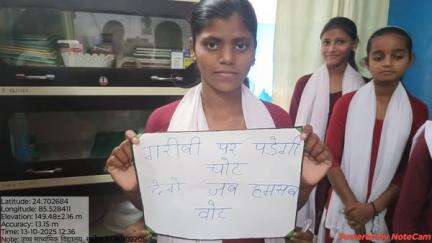 गरीबी पर पडेगी
चोट
देगें जब हमसब
वोट
Latitude: 24.702684
Longitude: 85.528411
Elevation: 149.48±2.16 m
Accuracy: 13.15 m
Time: 13-10-2025 12:36
Powered by NoteCam